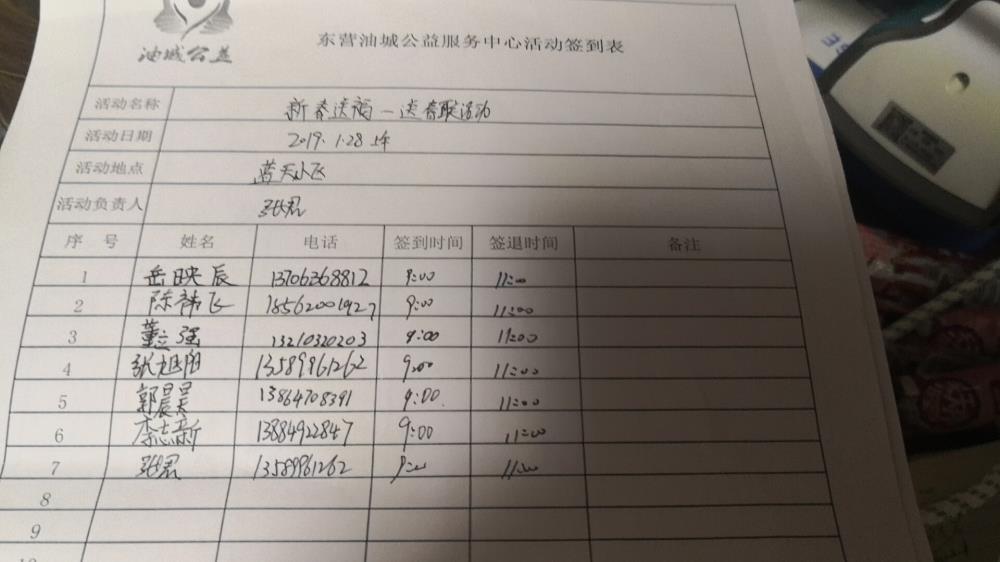 油城公益
东营油城公益服务中心活动签到表
活动名称 新春送福—送春联活动
活动日期 2019.1.28 上午
活动地点 蓝天小飞
活动负责人 张君
序号 姓名 电话 签到时间 签退时间 备注
1 岳映辰 13706368812 9:00 11:00
2 陈韩飞 18562001927 9:00 11:00
3 董立强 13210320203 9:00 11:00
4 张旭阳 13589961262 9:00 11:00
5 郭晨昊 13864708391 9:00 11:00
6 李志新 13884922847 9:00 11:00
7 张君 13589961262 9:00 11:00
8
9